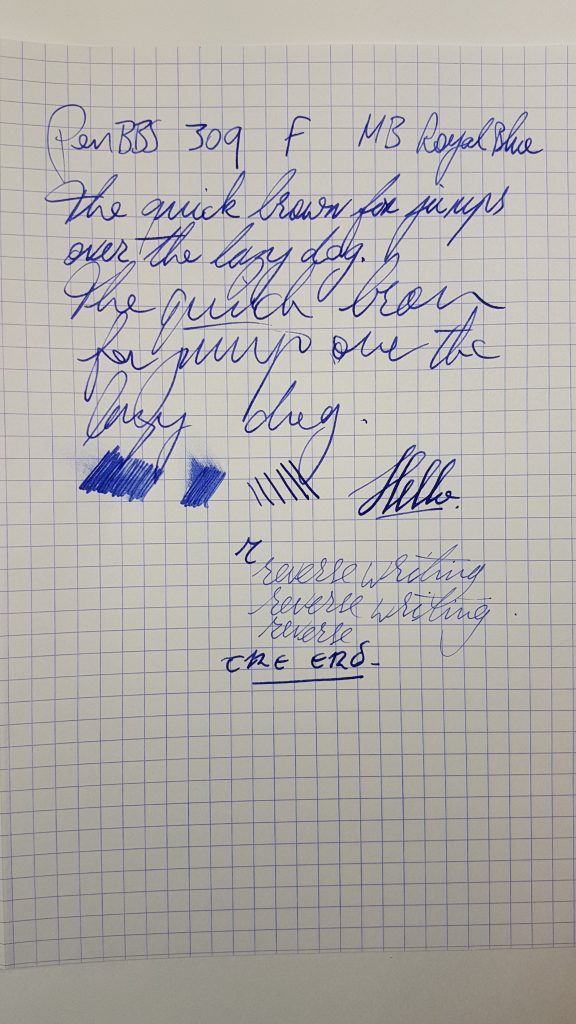 PenBBS 309 F MB Royal Blue
The quick brown fox jumps
over the lazy dog.
The quick brown
fox jumps over the
lazy dog.
Hello.
r
reverse writing
reverse writing.
reverse
THE END-